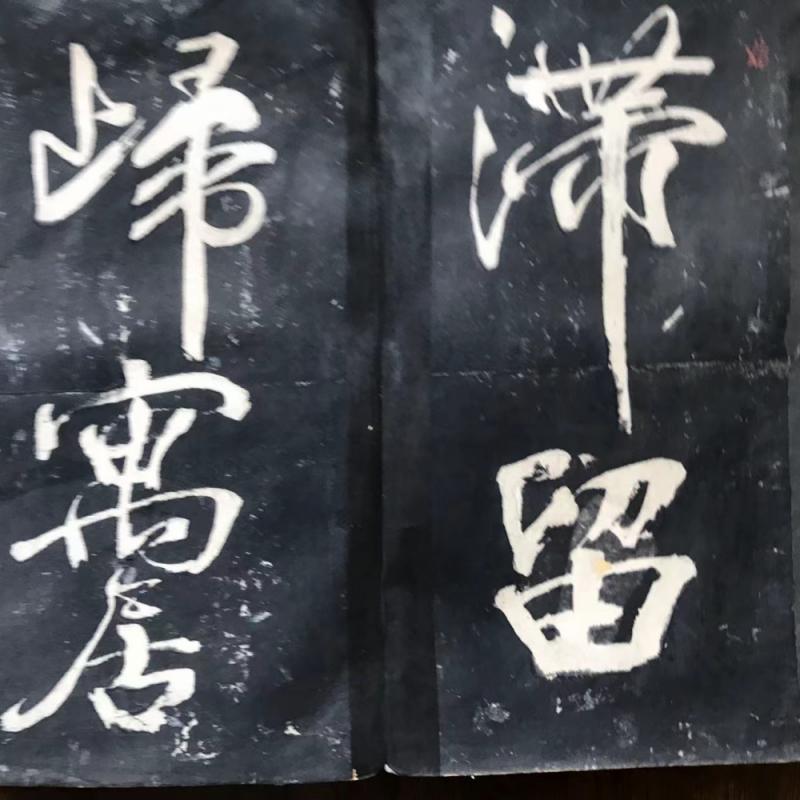 滯留
歸寓居